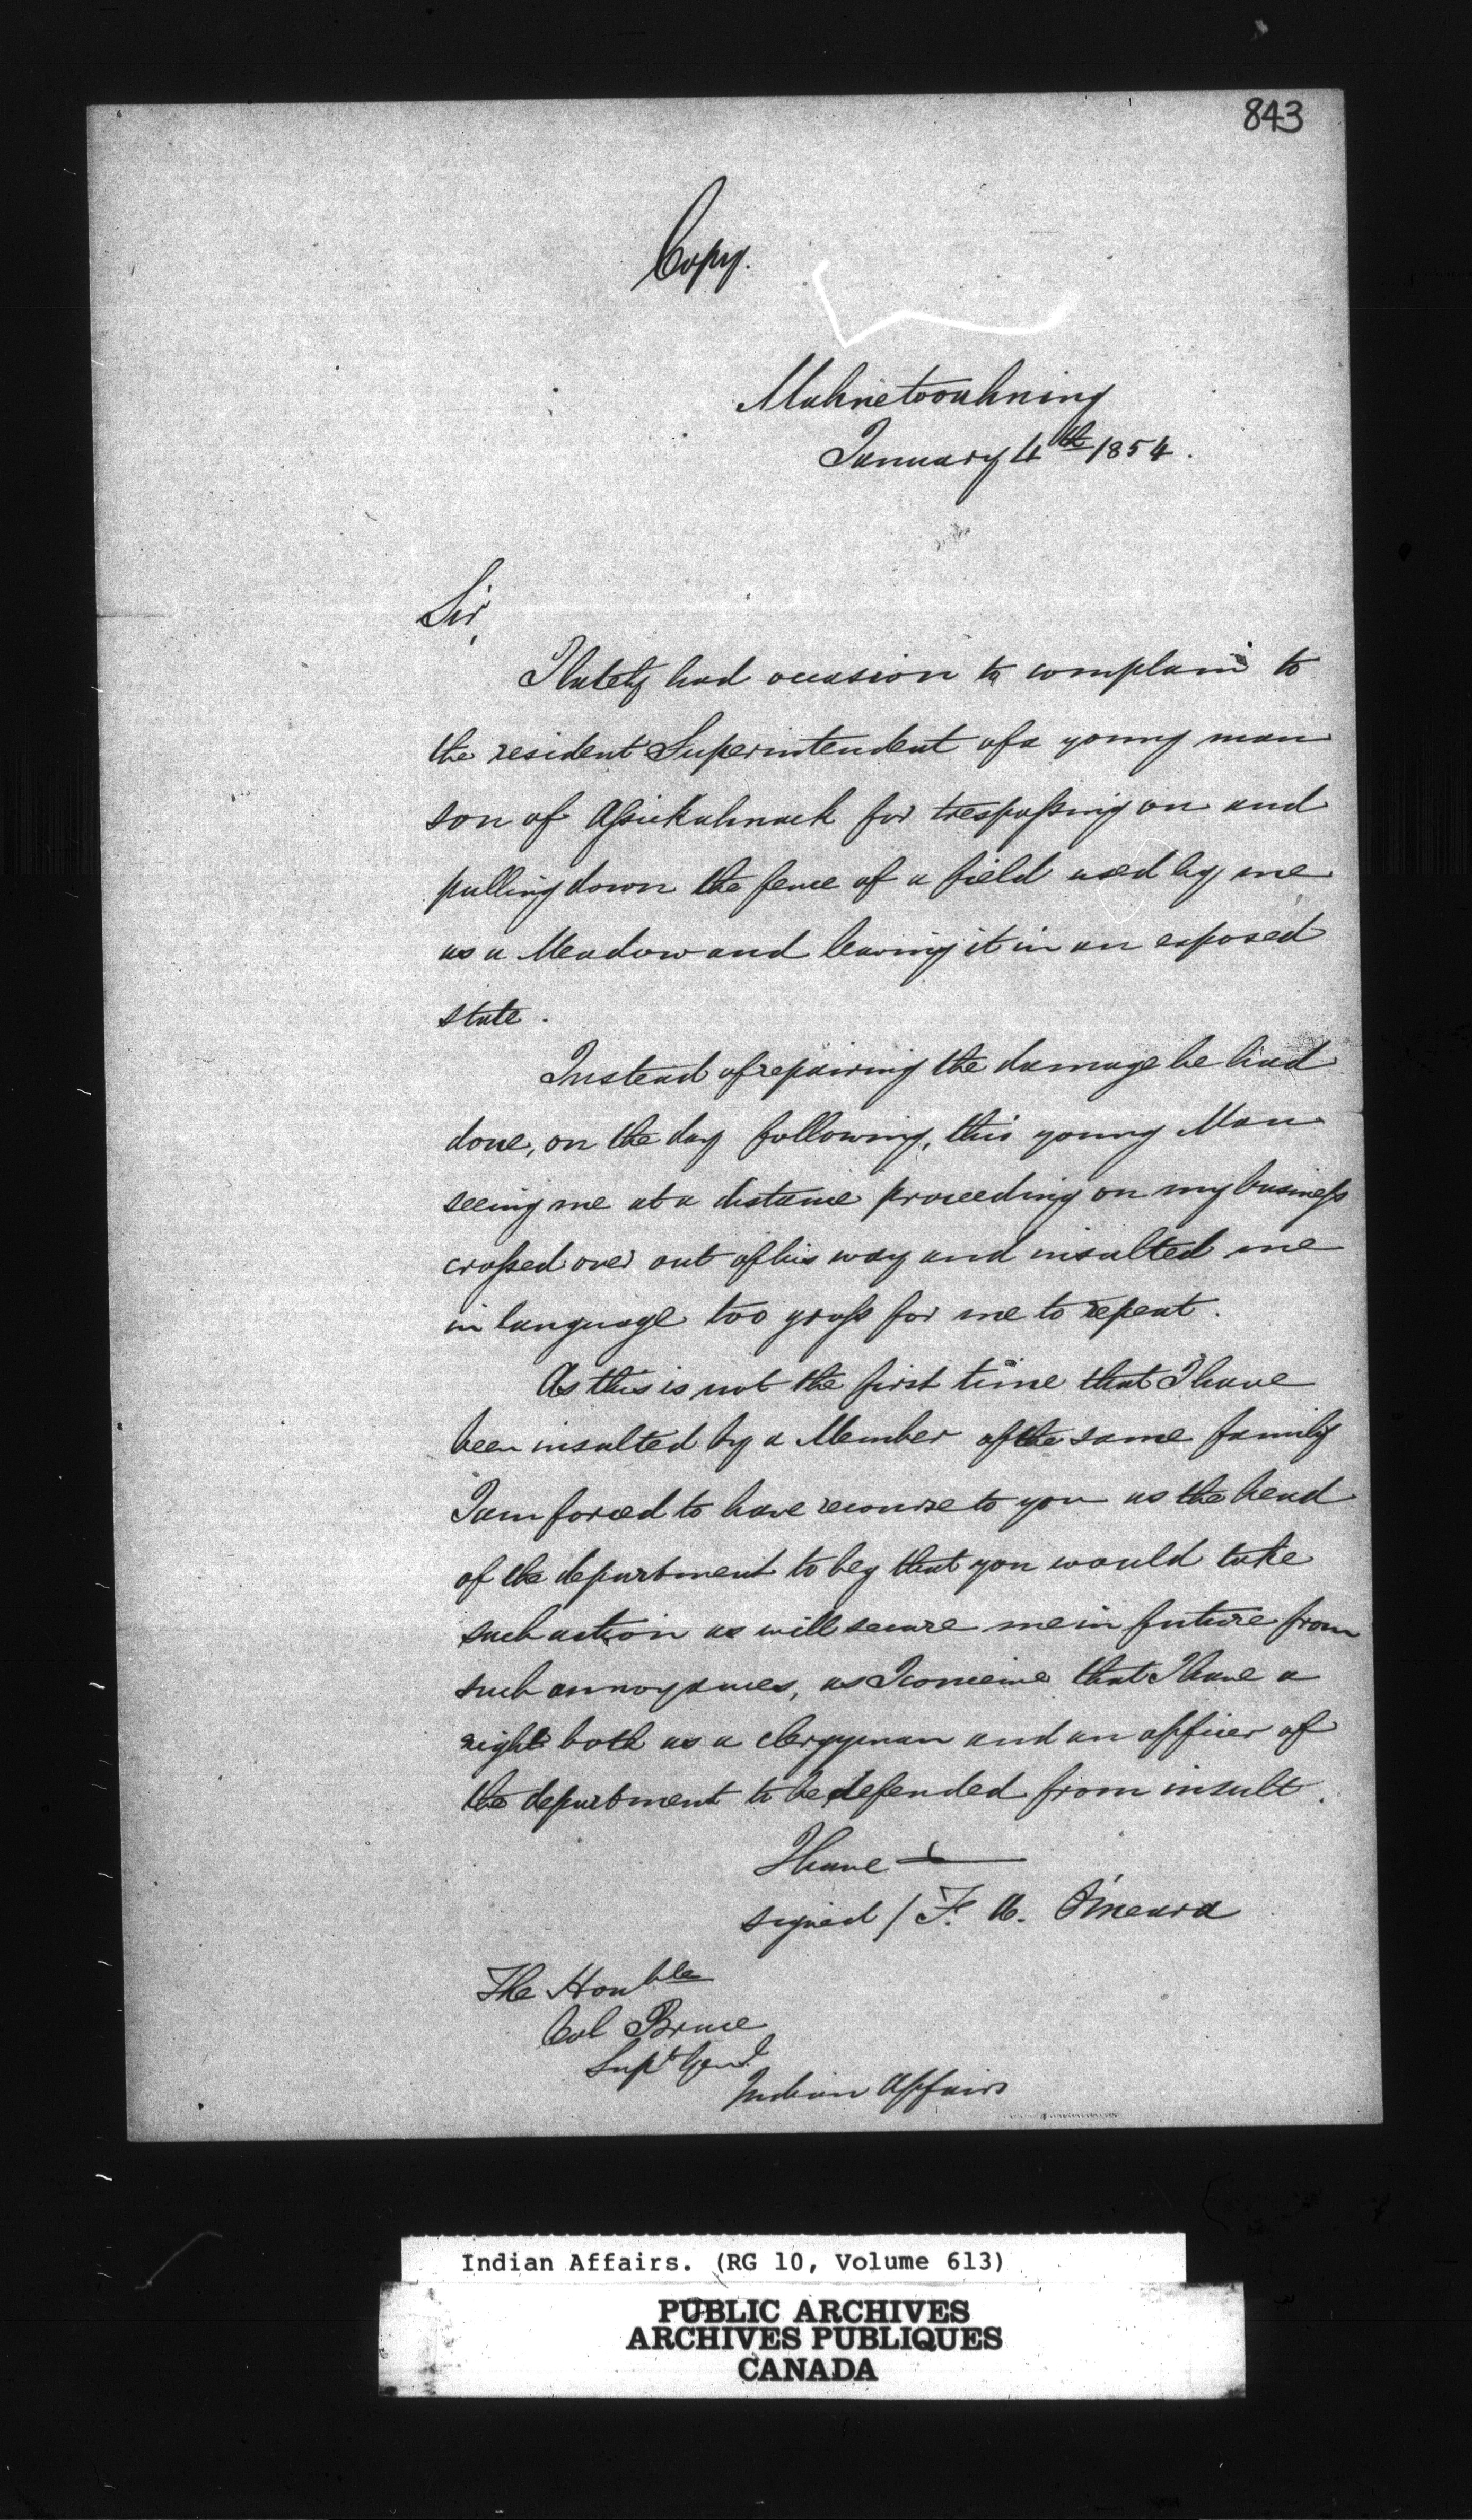 843
Copy.
Mahnetooahning
January 4th 1854.
Sir,
I lately had occasion to complain to
the resident Superintendent of a young man
son of Assickahnack for trespassing on and
pulling down the fence of a field used by me
as a Meadow and leaving it in an exposed
state.
Instead of repairing the damage he had
done, on the day following, this young Man
seeing me at a distance proceeding on my business
crossed over out of his way and insulted me
in language too gross for me to repeat.
As this is not the first time that I have
been insulted by a Member of the same family
I am forced to have recourse to you as the head
of the department to beg that you would take
such action as will secure me in future from
such annoyances, as I conceive that I have a
right both as a clergyman and an officer of
the department to be defended from insult.
I have
signed / F. A. O'Meara
The Honble
Col Bruce
Supt Genl
Indian Affairs
Indian Affairs. (RG 10, Volume 613)
PUBLIC ARCHIVES
ARCHIVES PUBLIQUES
CANADA